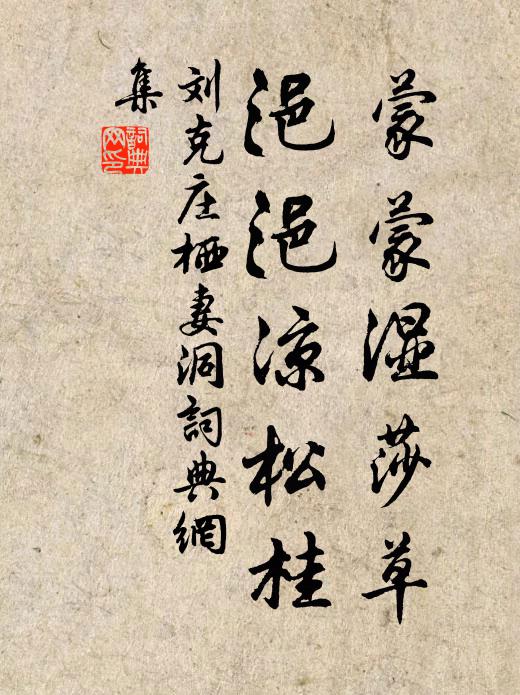 蒙蒙湿莎草
浥浥凉松桂
刘克庄栖妻洞詞典網
集
詞典網印